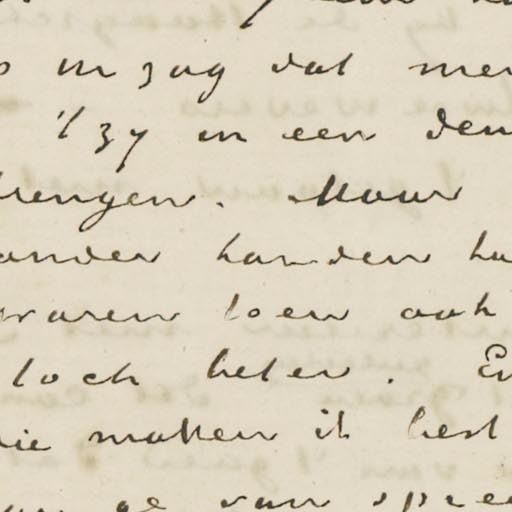 in zag dat men
't zy in een den
brengen. Maar
ander handen ha
waren toen ook
toch beter. En
die maken ik best
ge van spree